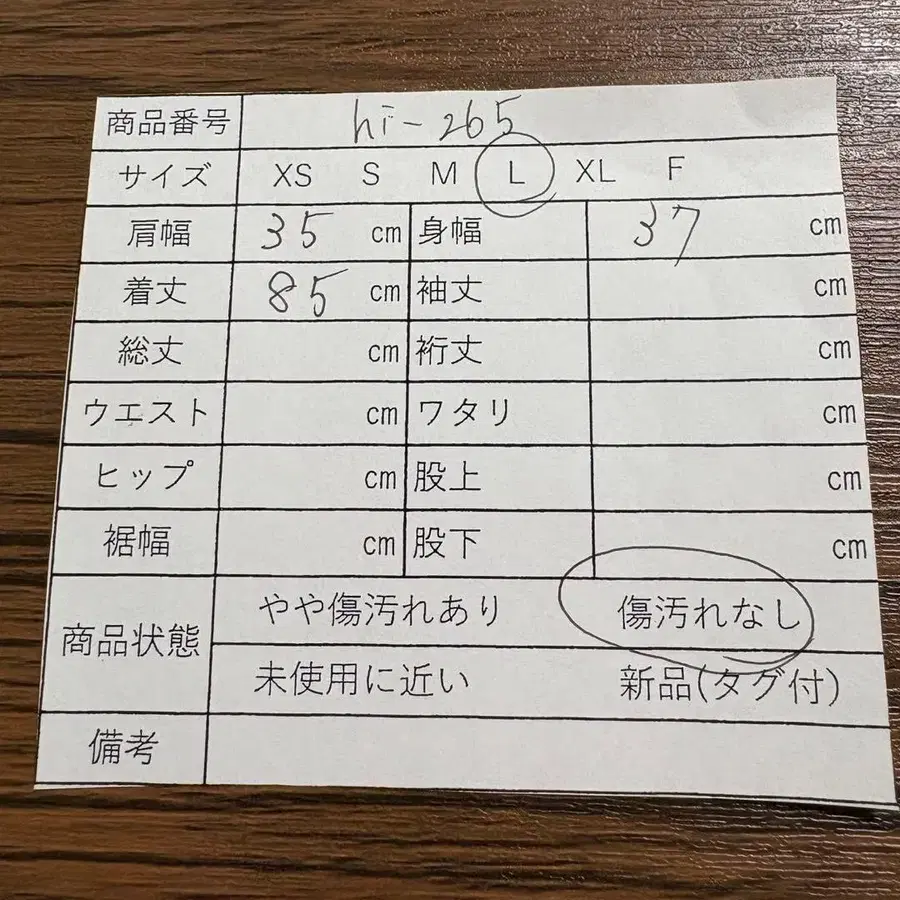 商品番号 hi-265
サイズ XS S M L XL F
肩幅 35 cm 身幅 37 cm
着丈 85 cm 袖丈 cm
総丈 cm 裄丈 cm
ウエスト cm ワタリ cm
ヒップ cm 股上 cm
裾幅 cm 股下 cm
商品状態 やや傷汚れあり 傷汚れなし
未使用に近い 新品(タグ付)
備考